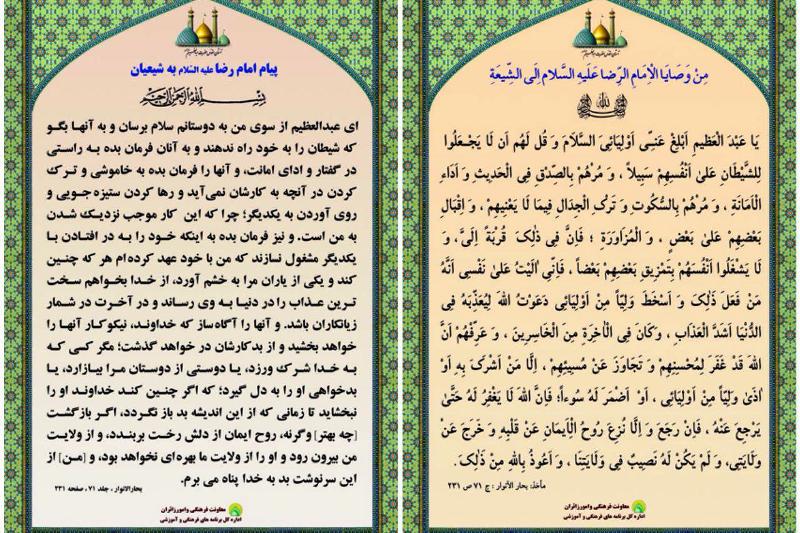 پیام امام رضا علیه السّلام به شیعیان
بِسْمِ اللهِ الرَّحْمنِ الرَّحِیمِ
ای عبدالعظیم از سوی من به دوستانم سلام برسان و به آنها بگو
که شیطان را به خود راه ندهند و به آنان فرمان بده به راستی
در گفتار و ادای امانت، و آنها را فرمان بده به خاموشی و ترک
کردن در آنچه به کارشان نمی‌آید و رها کردن ستیزه جویی و
روی آوردن به یکدیگر؛ چرا که این کار موجب نزدیک شدن
به من است. و نیز فرمان بده به اینکه خود را به در افتادن با
یکدیگر مشغول نسازند که من با خود عهد کرده‌ام هر که چنین
کند و یکی از یاران مرا به خشم آورد، از خدا بخواهم سخت
ترین عذاب را در دنیا به وی رساند و در آخرت در شمار
زیانکاران باشد. و آنها را آگاه‌ساز که خداوند، نیکوکار آنها را
خواهد بخشید و از بدکارشان در خواهد گذشت؛ مگر کسی که
به خدا شرک ورزد، یا دوستی از دوستان مرا بیازارد، یا
بدخواهی او را به دل گیرد؛ که اگر چنین کند خداوند او را
نبخشاید تا زمانی که از این اندیشه بد باز نگردد، اگر بازگشت
[چه بهتر] وگرنه، روح ایمان از دلش رخت بربندد، و از ولایت
من بیرون رود و او را از ولایت ما بهره‌ای نخواهد بود، و [من] از
این سرنوشت بد به خدا پناه می برم.
بحارالانوار ، جلد ۷۱ ، صفحه ۲۳۱
معاونت فرهنگی وامورزائران
اداره کل برنامه های فرهنگی و آموزشی
مِنْ وَصَایَا الْاِمَامِ الرِّضَا عَلَیهِ السَّلام اِلَی الشِّیعَة
یَا عَبْدَ الْعَظِیمِ اَبْلِغْ عَنِّی اَوْلِیَائِیَ السَّلَامَ وَ قُل لَهُم اَن لَا یَجْعَلُوا
لِلشَّیْطَانِ عَلیٰ اَنْفُسِهِمْ سَبِیلاً ، وَ مُرْهُمْ بِالصِّدْقِ فِی الْحَدِیثِ وَ اَدَاءِ
الْاَمَانَةِ ، وَ مُرْهُمْ بِالسُّکُوتِ وَ تَرْکِ الْجِدَالِ فِیمَا لَا یَعْنِیهِمْ ، وَ اِقْبَالِ
بَعْضِهِمْ عَلیٰ بَعْضٍ ، وَ الْمُزَاوَرَةِ ؛ فَاِنَّ فِی ذٰلِکَ قُرْبَةً اِلَیَّ ، وَ
لَا یَشْغَلُوا اَنْفُسَهُمْ بِتَمْزِیقِ بَعْضِهِمْ بَعْضاً ، فَاِنِّی آلَیْتُ عَلیٰ نَفْسِی اَنَّهُ
مَنْ فَعَلَ ذٰلِکَ وَ اَسْخَطَ وَلِیّاً مِنْ اَوْلِیَائِی دَعَوْتُ اللهَ لِیُعَذِّبَهُ فِی
الدُّنْیَا اَشَدَّ الْعَذَابِ ، وَکَانَ فِی الْآخِرَةِ مِنَ الْخَاسِرِینَ ، وَ عَرِّفْهُمْ اَنَّ
اللهَ قَدْ غَفَرَ لِمُحْسِنِهِمْ وَ تَجَاوَزَ عَنْ مُسِیئِهِمْ ، اِلَّا مَنْ اَشْرَکَ بِهِ اَوْ
اٰذیٰ وَلِیّاً مِنْ اَوْلِیَائِی ، اَوْ اَضْمَرَ لَهُ سُوءاً؛ فَاِنَّ اللهَ لَا یَغْفِرُ لَهُ حَتّیٰ
یَرْجِعَ عَنْهُ ، فَاِنْ رَجَعَ وَ اِلَّا نُزِعَ رُوحُ الْاِیمَانِ عَنْ قَلْبِهِ وَ خَرَجَ عَنْ
وِلَایَتِی، وَ لَمْ یَکُنْ لَهُ نَصِیبٌ فِی وِلَایَتِنَا ، وَ اَعُوذُ بِاللهِ مِنْ ذٰلِکَ.
مأخذ: بحار الأنوار : ج ۷۱ ص ۲۳۱
معاونت فرهنگی وامورزائران
اداره کل برنامه های فرهنگی و آموزشی